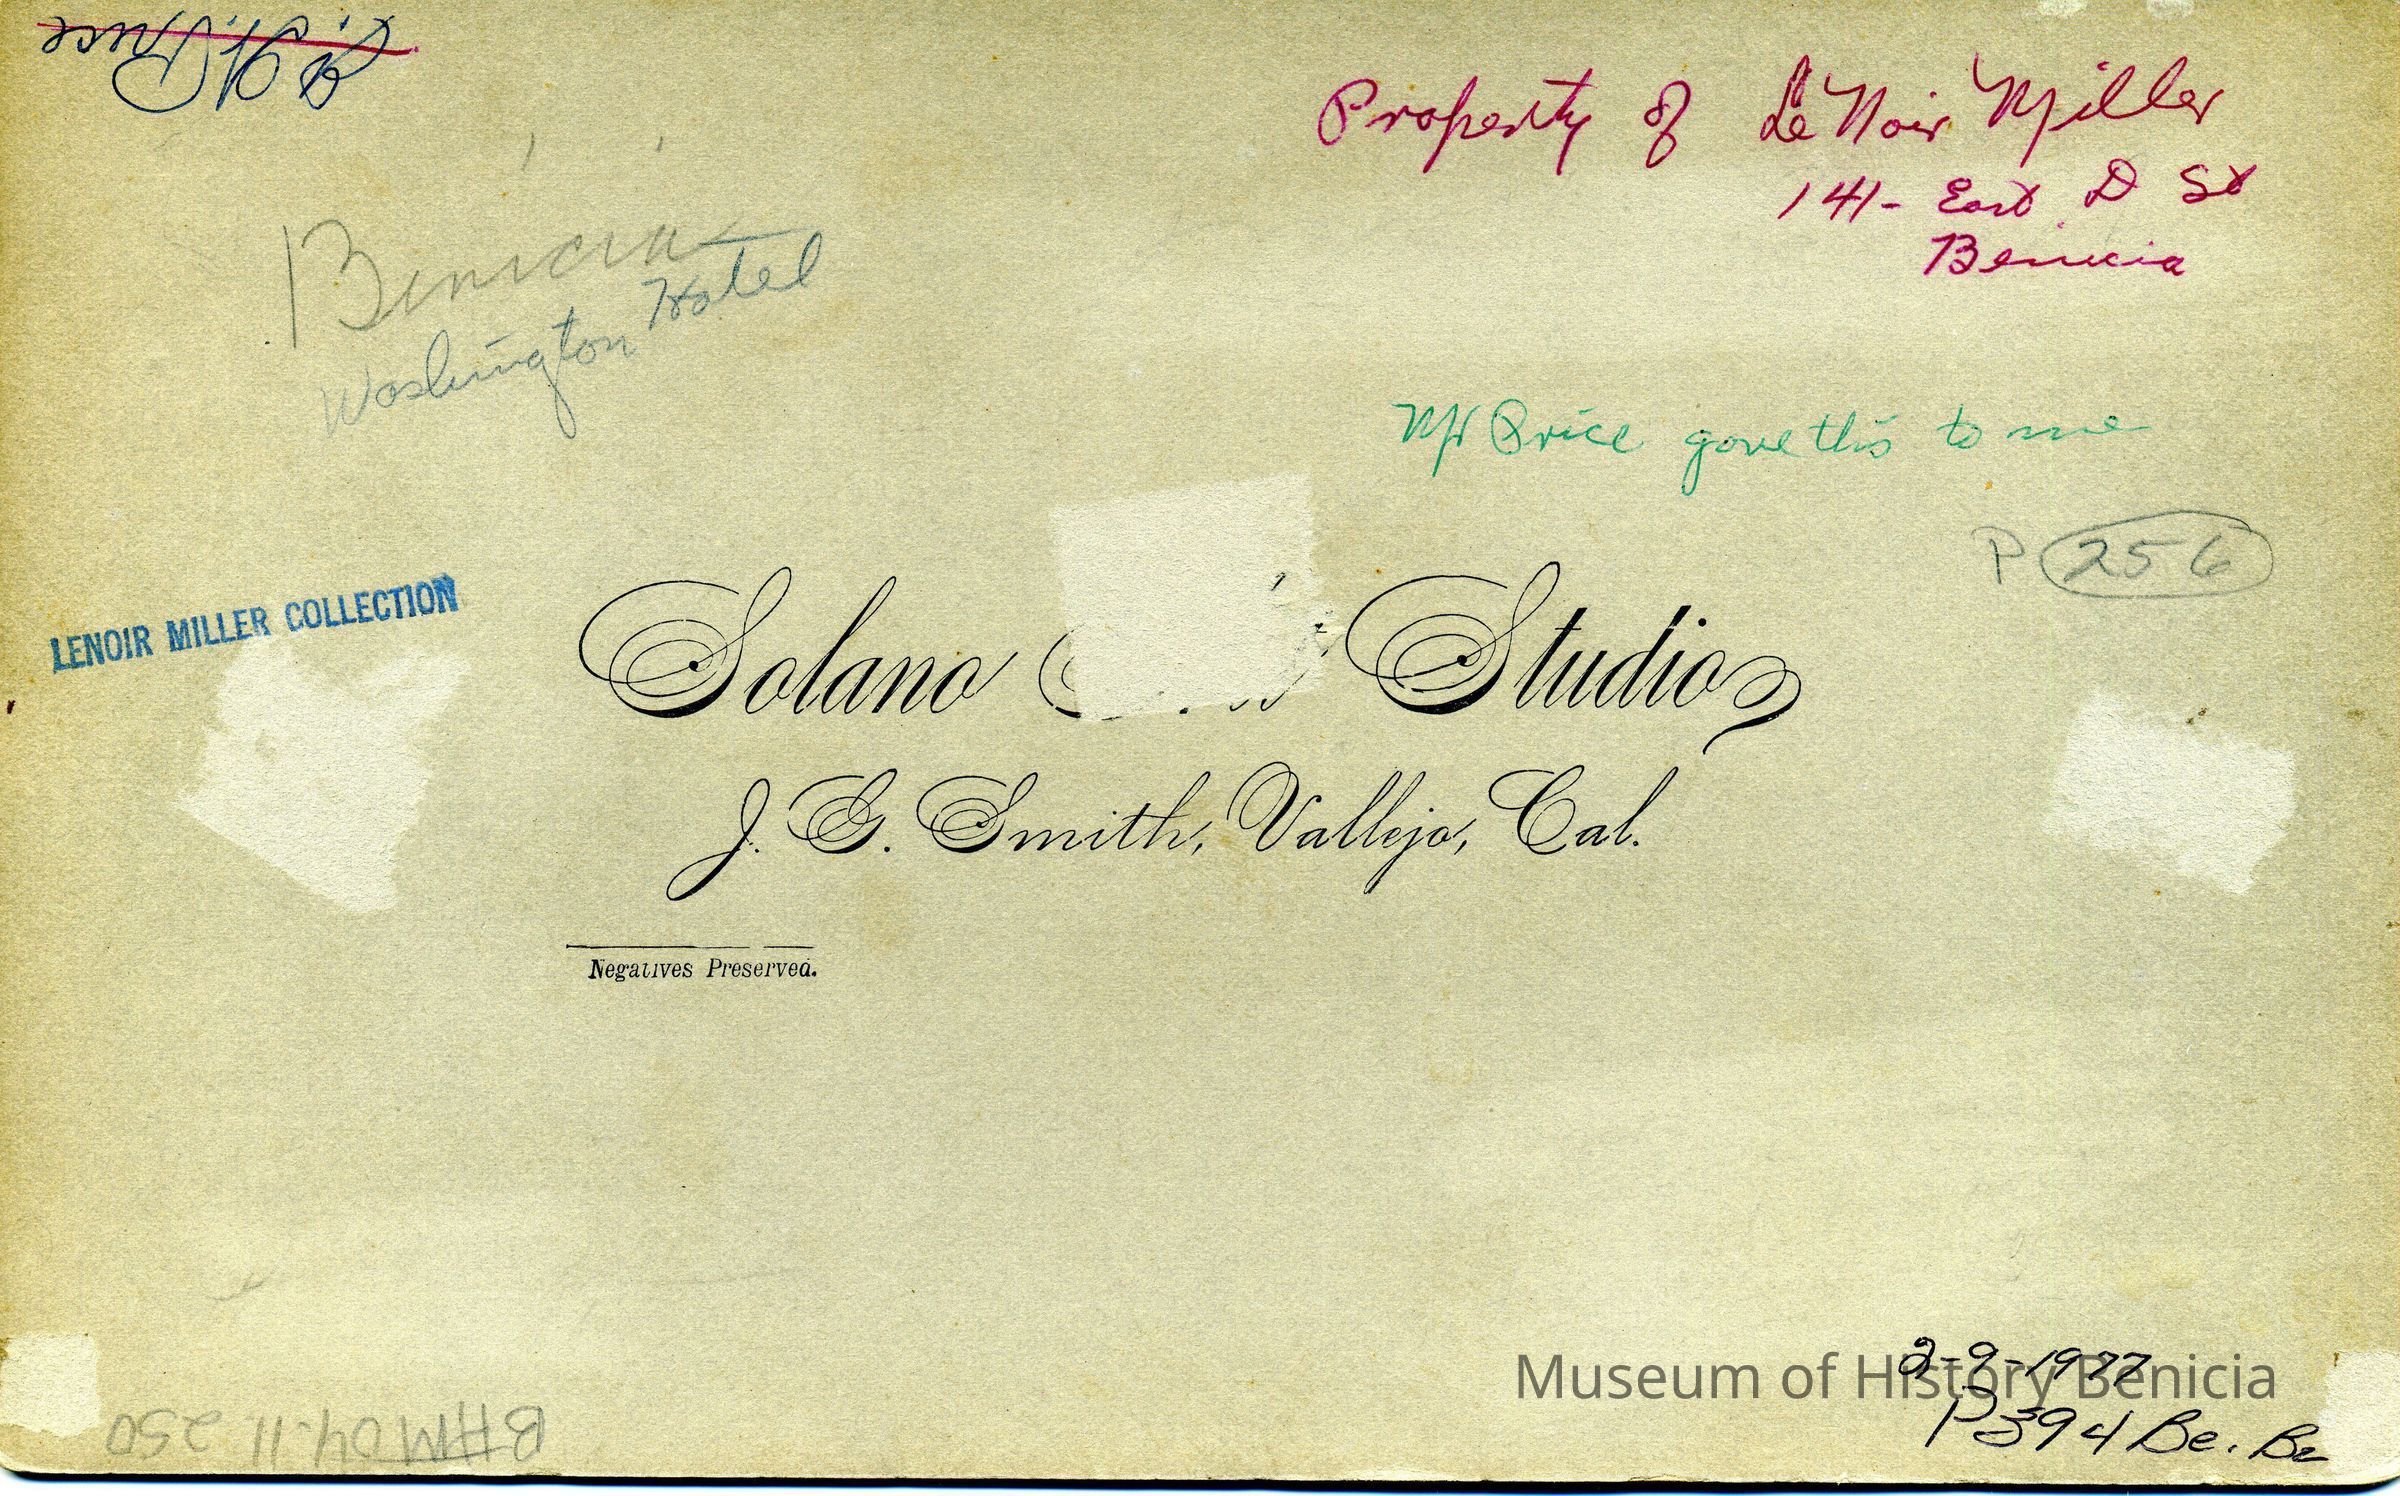 Price
Property of LeNoir Miller
141- East D St
Benicia
Benicia
Washington Hotel
Mr Price gave this to me
P 256
LENOIR MILLER COLLECTION
Solano Studio
J. G. Smith, Vallejo, Cal.
Negatives Preserved.
Museum of History Benicia
2-9-1977
P394 Be. Be
BHM 04.11.250